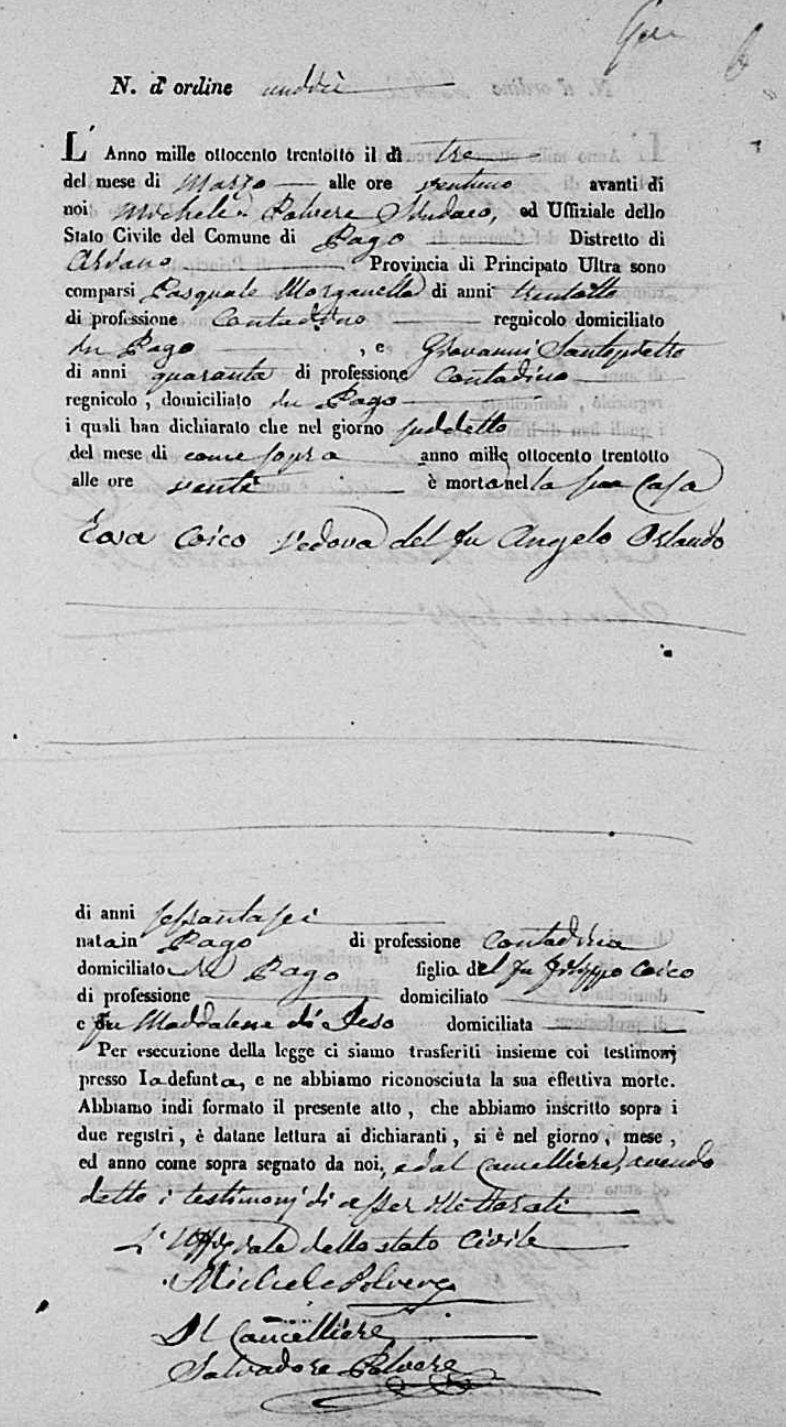 N. d'ordine undici
L'Anno mille ottocento trentotto il di tre
del mese di Marzo alle ore ventuno avanti di
noi Michele Polvere Sindaco, ed Uffiziale dello
Stato Civile del Comune di Pago Distretto di
Ariano Provincia di Principato Ultra sono
comparsi Pasquale Morganella di anni trentotto
di professione Contadino regnicolo domiciliato
in Pago , e Giovanni Santopietro
di anni quaranta di professione Contadino
regnicolo , domiciliato in Pago
i quali han dichiarato che nel giorno suddetto
del mese di come sopra anno mille ottocento trentotto
alle ore venti è morta nella sua Casa
Rosa Coico Vedova del fu Angelo Orlando
di anni sessantasei
nata in Pago di professione Contadina
domiciliato in Pago figlia del fu Filippo Coico
di professione domiciliato
e fu Maddalena di Ieso domiciliata
Per esecuzione della legge ci siamo trasferiti insieme coi testimonj
presso la defunta, e ne abbiamo riconosciuta la sua effettiva morte.
Abbiamo indi formato il presente atto , che abbiamo inscritto sopra i
due registri , è datane lettura ai dichiaranti , si è nel giorno , mese ,
ed anno come sopra segnato da noi, e dal Cancelliere, avendo
detto i testimonj di esser illetterati
L'Uffiziale dello stato Civile
Michele Polvere
Il Cancelliere
Salvadore Polvere